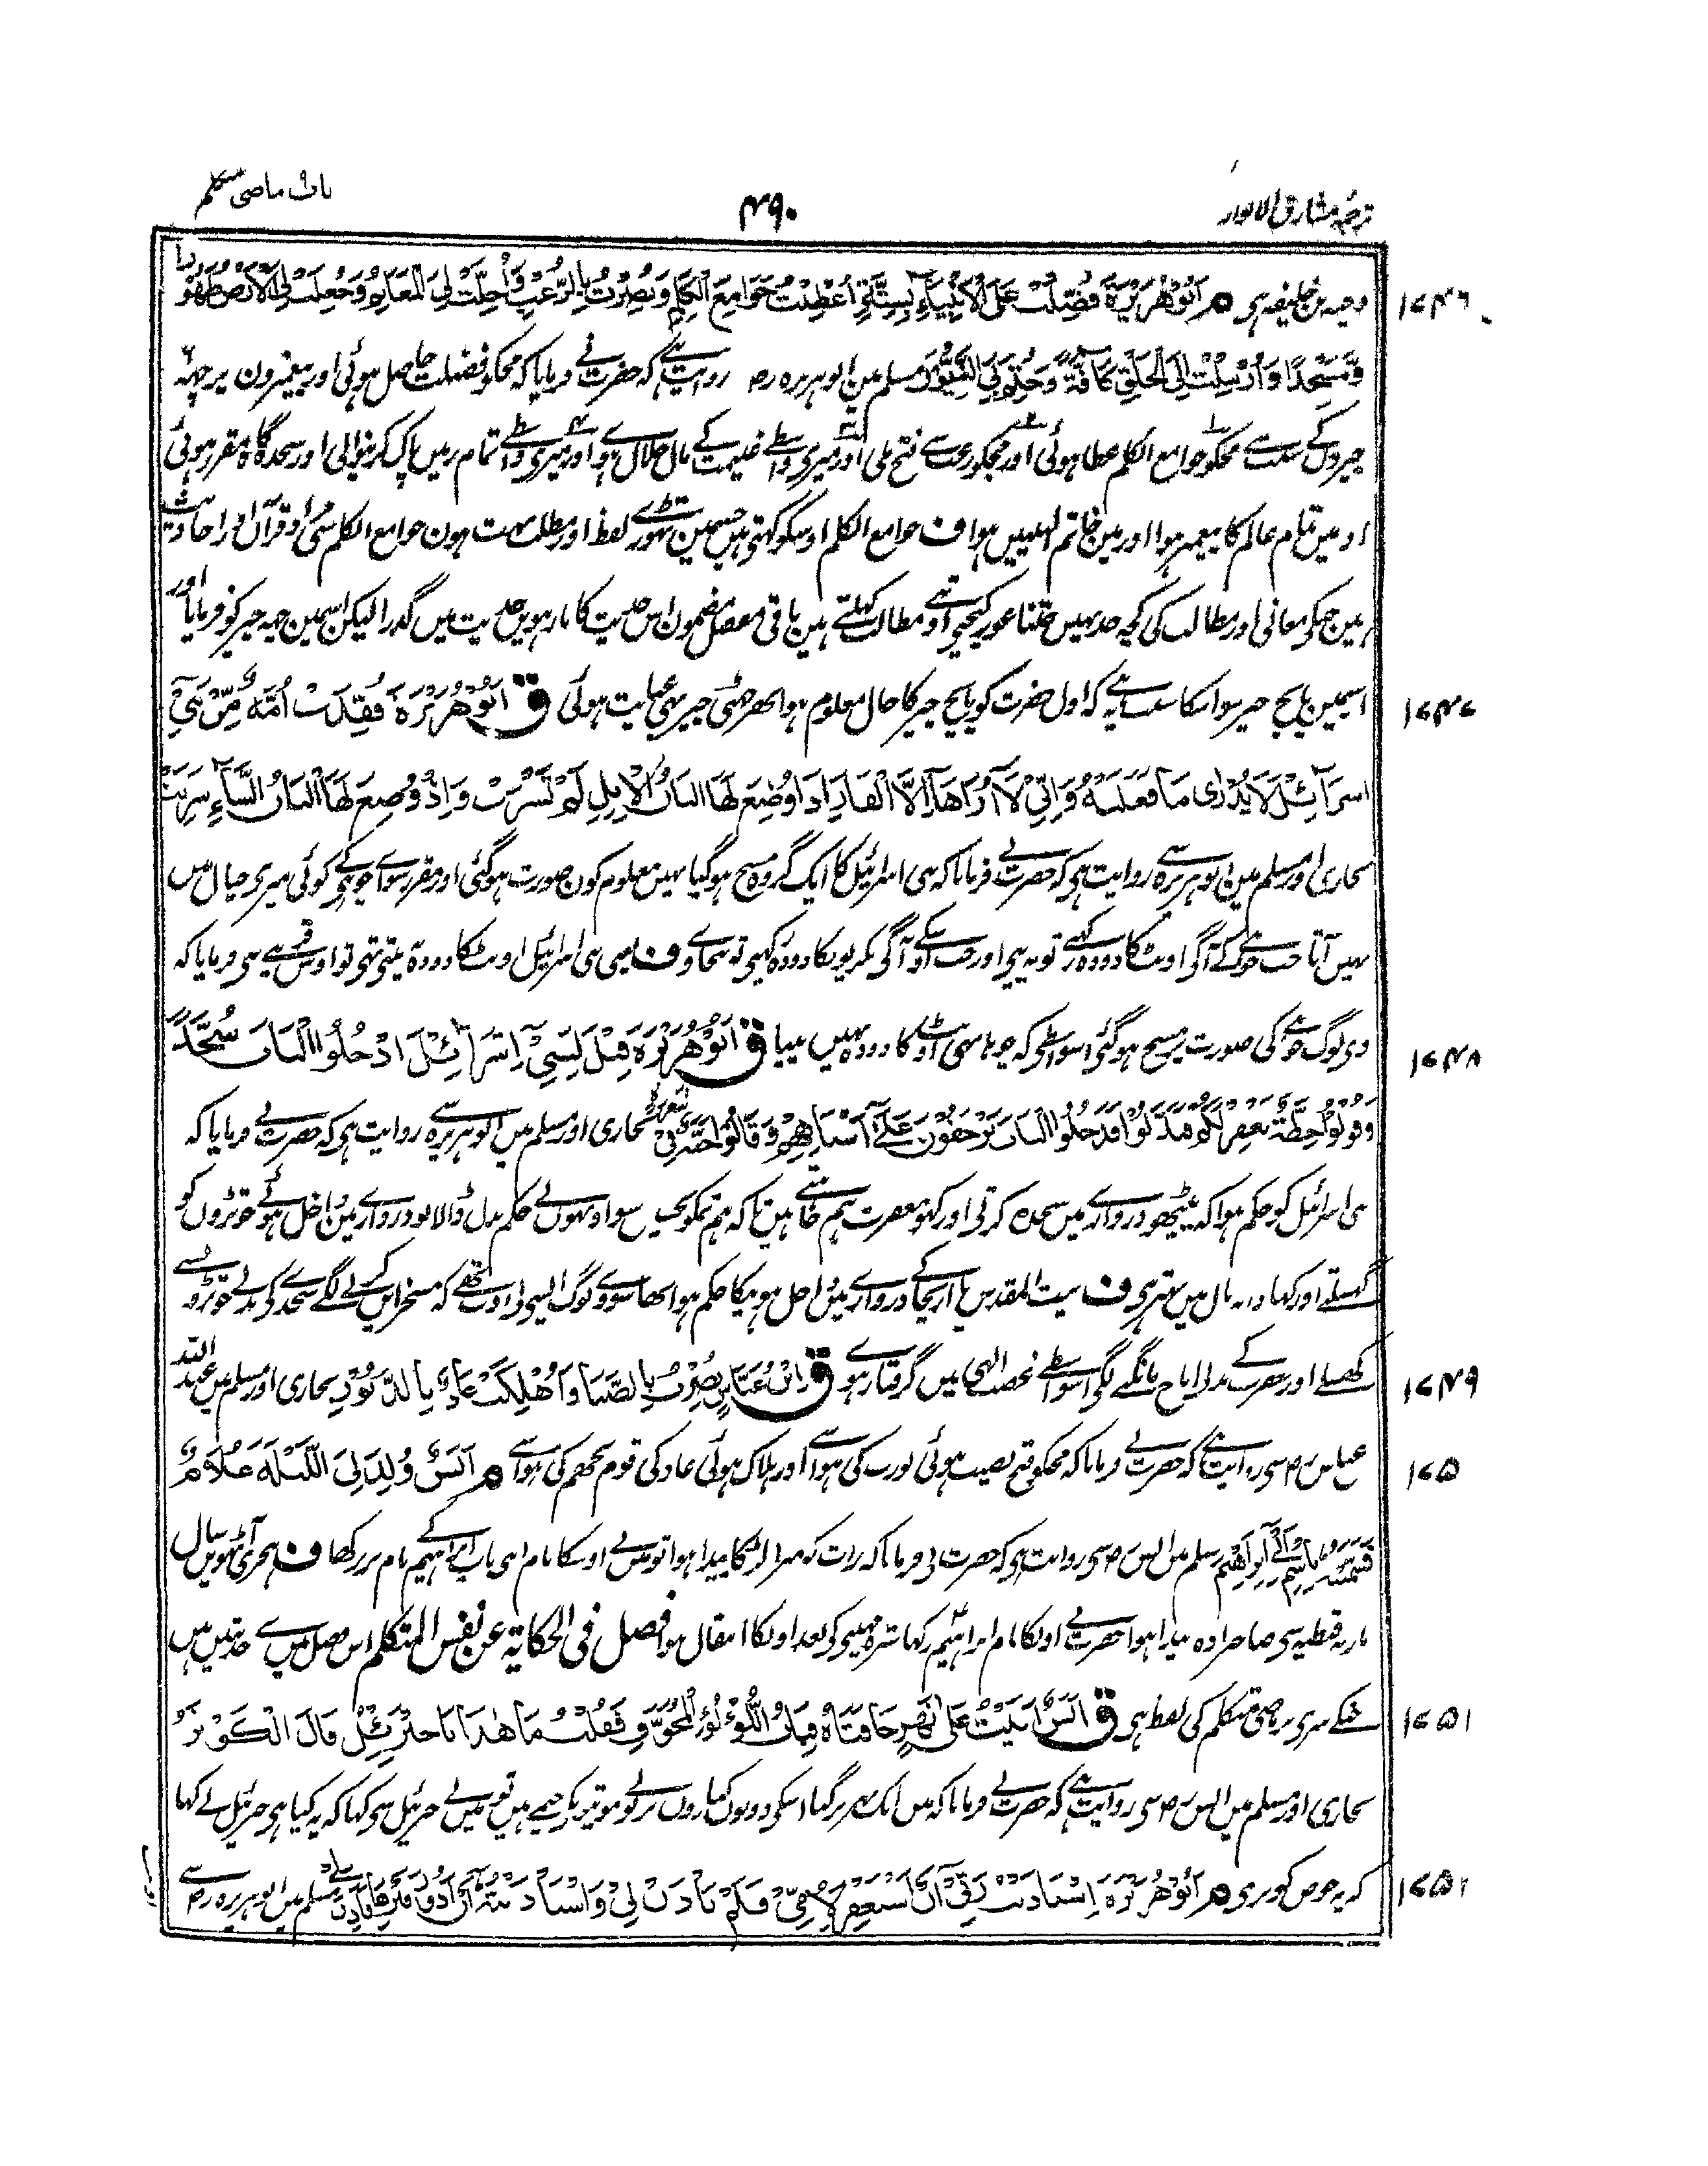 ترجمہ مشارق الانوار
۴۹۰
باب ماضی متکلم
۱۷۴۶
وحیہ بن خلیفہ ہی م اَبُوْهُرَيْرَةَ فُضِّلْتُ عَلَى الْاَنْبِيَاءِ بِسِتَّةٍ اُعْطِيْتُ جَوَامِعَ الْكَلِمِ وَنُصِرْتُ بِالرُّعْبِ وَاُحِلَّتْ لِيَ الْمَغَانِمُ وَجُعِلَتْ لِيَ الْاَرْضُ طَهُوْرًا
وَّمَسْجِدًا وَاُرْسِلْتُ اِلَى الْخَلْقِ كَافَّةً وَخُتِمَ بِيَ النَّبِيُّوْنَ مسلم مین ابو ہریرہ رض روایت ہے کہ حضرت نے فرمایا کہ مجکو فضیلت حاصل ہوئی اور پیغمبرون پر چھہ
چیزوں کے سبب سے مجکو جوامع الکلم عطا ہوئی اور مجکو رعب سے فتح ملی اور میری واسطے غنیمت کے مال حلال ہوے اور میری واسطے تمام زمیں پاک کرنیوالی اور سجدہ گاہ مقرر ہوئی
اور میں تمام عالم کا پیغمبر ہوا اور مین خاتم النبیین ہوا ف جوامع الکلم اوسکو کہتی ہیں جسمین تھوڑے لفظ اور مطلب بہت ہون جوامع الکلم سی مراد قرآن اور احادیث
ہین جنکی معانی اور مطالب کی کچہ حد نہیں جتنا غور کیجیے اتنے مطالب کہلتے ہین باقی مفصل مضمون اس حدیث کا بارہویں حدیث میں گذرا لیکن اسمین چہہ چیز کو فرمایا اور
۱۷۴۷
اسمین پانچ چیز سو اسکا سبب یہ ہے کہ اول حضرت کو پانچ چیز کا حال معلوم ہوا پھر چھٹی چیز بھی عنایت ہوئی ق اَبُوْهُرَيْرَةَ فُقِدَتْ اُمَّةٌ مِّنْ بَنِيْ
اِسْرَآئِيْلَ لَا يُدْرٰى مَا فَعَلَتْ وَاِنِّيْ لَآ اُرَاهَآ اِلَّا الْفَارَ اِذَا وُضِعَ لَهَا اَلْبَانُ الْاِبِلِ لَمْ تَشْرَبْ وَاِذَا وُضِعَ لَهَا اَلْبَانُ الشَّاءِ شَرِبَتْ
بخاری اور مسلم مین ابو ہریرہ سے روایت ہی کہ حضرت نے فرمایا کہ بنی اسرائیل کا ایک گروہ مسخ ہوگیا نہیں معلوم کون صورت ہوگئی اور مقرر سوا چوہے کے کوئی میری خیال میں
نہیں آتا جب چوہے کے آگی اونٹ کا دودہ رکہیے تو نہ پیے اور جب اوسکے آگی بکریوںکا دودہ رکہیے تو پی جاوے ف یعنی بنی اسرائیل اونٹ کا دودہ نہ پیتی تہی تو اوس قرینے سی فرمایا کہ
۱۷۴۸
وی لوگ چوہے کی صورت پر مسخ ہوگئی اسواسطے کہ چوہا بھی اونٹ کا دودہ نہیں پیتا ق اَبُوْهُرَيْرَةَ قِيْلَ لِبَنِيْ اِسْرَآئِيْلَ ادْخُلُوا الْبَابَ سُجَّدًا
وَقُوْلُوْا حِطَّةٌ يُغْفَرْ لَكُمْ فَبَدَّلُوْا فَدَخَلُوا الْبَابَ يَزْحَفُوْنَ عَلٰى اَسْتَاهِهِمْ وَقَالُوْا حَبَّةٌ فِيْ شَعْرَةٍ بخاری اور مسلم میں ابو ہریرہ سے روایت ہی کہ حضرت نے فرمایا کہ
بنی اسرائیل کو حکم ہوا کہ پیٹھو دروازے میں سجدہ کرتی اور کہو مغفرت ہم چاہتے ہین تاکہ ہم تمکو بخشیں سو اونہوں نے حکم بدل ڈالا تو دروازے مین داخل ہوئے چوتڑوں کو
گھسلتے اور کہا دانہ بال میں بہتر ہی ف بیت المقدس یا اریحا کے دروازے مین داخل ہونیکا حکم ہوا تھا سو وے لوگ ایسی بے ادب تھے کہ مسخراپن کرنے لگے سجدے کی بدلے چوتڑوں سے
۱۷۴۹
گھسلے اور مغفرت کے بدلے اناج مانگنے لگی اسواسطے غضب الہی میں گرفتار ہوے ق اِبْنُ عَبَّاسٍ نُصِرْتُ بِالصَّبَا وَاُهْلِكَتْ عَادٌ بِالدَّبُوْرِ بخاری اور مسلم میں عبد اللہ
۱۷۵
عباس رض سی روایت ہے کہ حضرت نے فرمایا کہ مجکو فتح نصیب ہوئی پورب کی ہوا سے اور ہلاک ہوئی عاد کی قوم پچھم کی ہوا سے م اَنَسٌ وُلِدَ لِيَ اللَّيْلَةَ غُلَامٌ
فَسَمَّيْتُهُ بِاسْمِ اَبِيْ اِبْرَاهِيْمَ مسلم میں انس رض سی روایت ہی کہ حضرت نے فرمایا کہ رات کو میرا لڑکا پیدا ہوا تو میں نے اوسکا نام اپنی باپ ابراہیم کے نام پر رکھا ف ہجری آٹھویں سال
ماریہ قبطیہ سی صاحبزادہ پیدا ہوا حضرت نے اونکا نام ابراہیم رکہا سترہ مہینی کو بعد اونکا انتقال ہوا فصل فی الحکایۃ عن نفس المتکلم اس فصل میں وے حدیثیں ہیں
۱۷۵۱
جنکے سری پر ماضی متکلم کی لفظ ہی ق اَنَسٌ اَتَيْتُ عَلٰى نَهَرٍ حَافَتَاهُ قِبَابُ اللُّؤْلُؤِ الْمُجَوَّفِ فَقُلْتُ مَا هٰذَا يَا جِبْرَئِيْلُ قَالَ الْكَوْثَرُ
بخاری اور مسلم میں انس رض سی روایت ہے کہ حضرت نے فرمایا کہ میں ایک نہر پر گیا اسکی دونوں کناروں پر پولے موتیوں کے خیمے ہیں تو میں نے جبرئیل سی کہا کہ یہ کیا ہی جبرئیل نے کہا
۱۷۵۲
کہ یہ حوض کوثر ہی م اَبُوْهُرَيْرَةَ اِسْتَاذَنْتُ رَبِّيْ اَنْ اَسْتَغْفِرَ لِاُمِّيْ فَلَمْ يَاْذَنْ لِيْ وَاسْتَاْذَنْتُهٗ اَنْ اَزُوْرَ قَبْرَهَا فَاَذِنَ لِيْ مسلم میں ابو ہریرہ رض سے